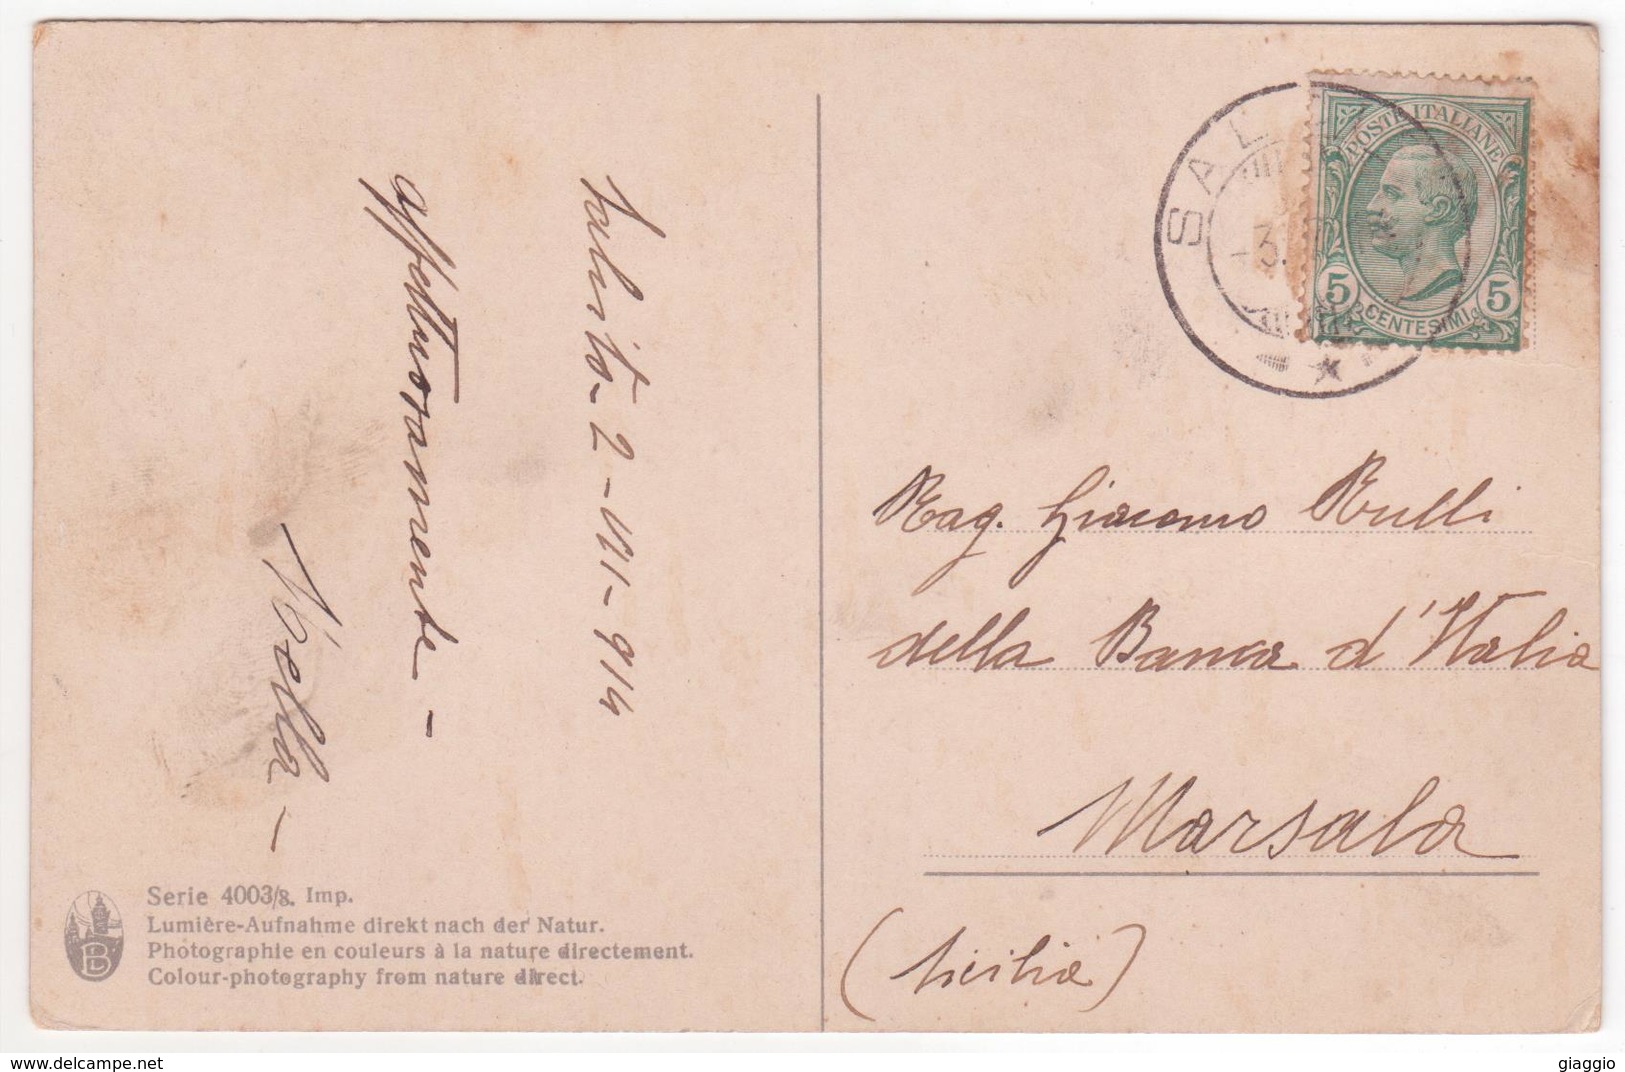 Salento - 2 - VII - 914
affettuosamente -
Serie 4003/8. Imp.
Lumière-Aufnahme direkt nach der Natur.
Photographie en couleurs à la nature directement.
Colour-photography from nature direct.
BL
SAL
- 3.
POSTE ITALIANE
5 CENTESIMI 5
Rag. Giacomo Rulli
della Banca d'Italia
Marsala
(Sicilia)
www.delcampe.net
giaggio